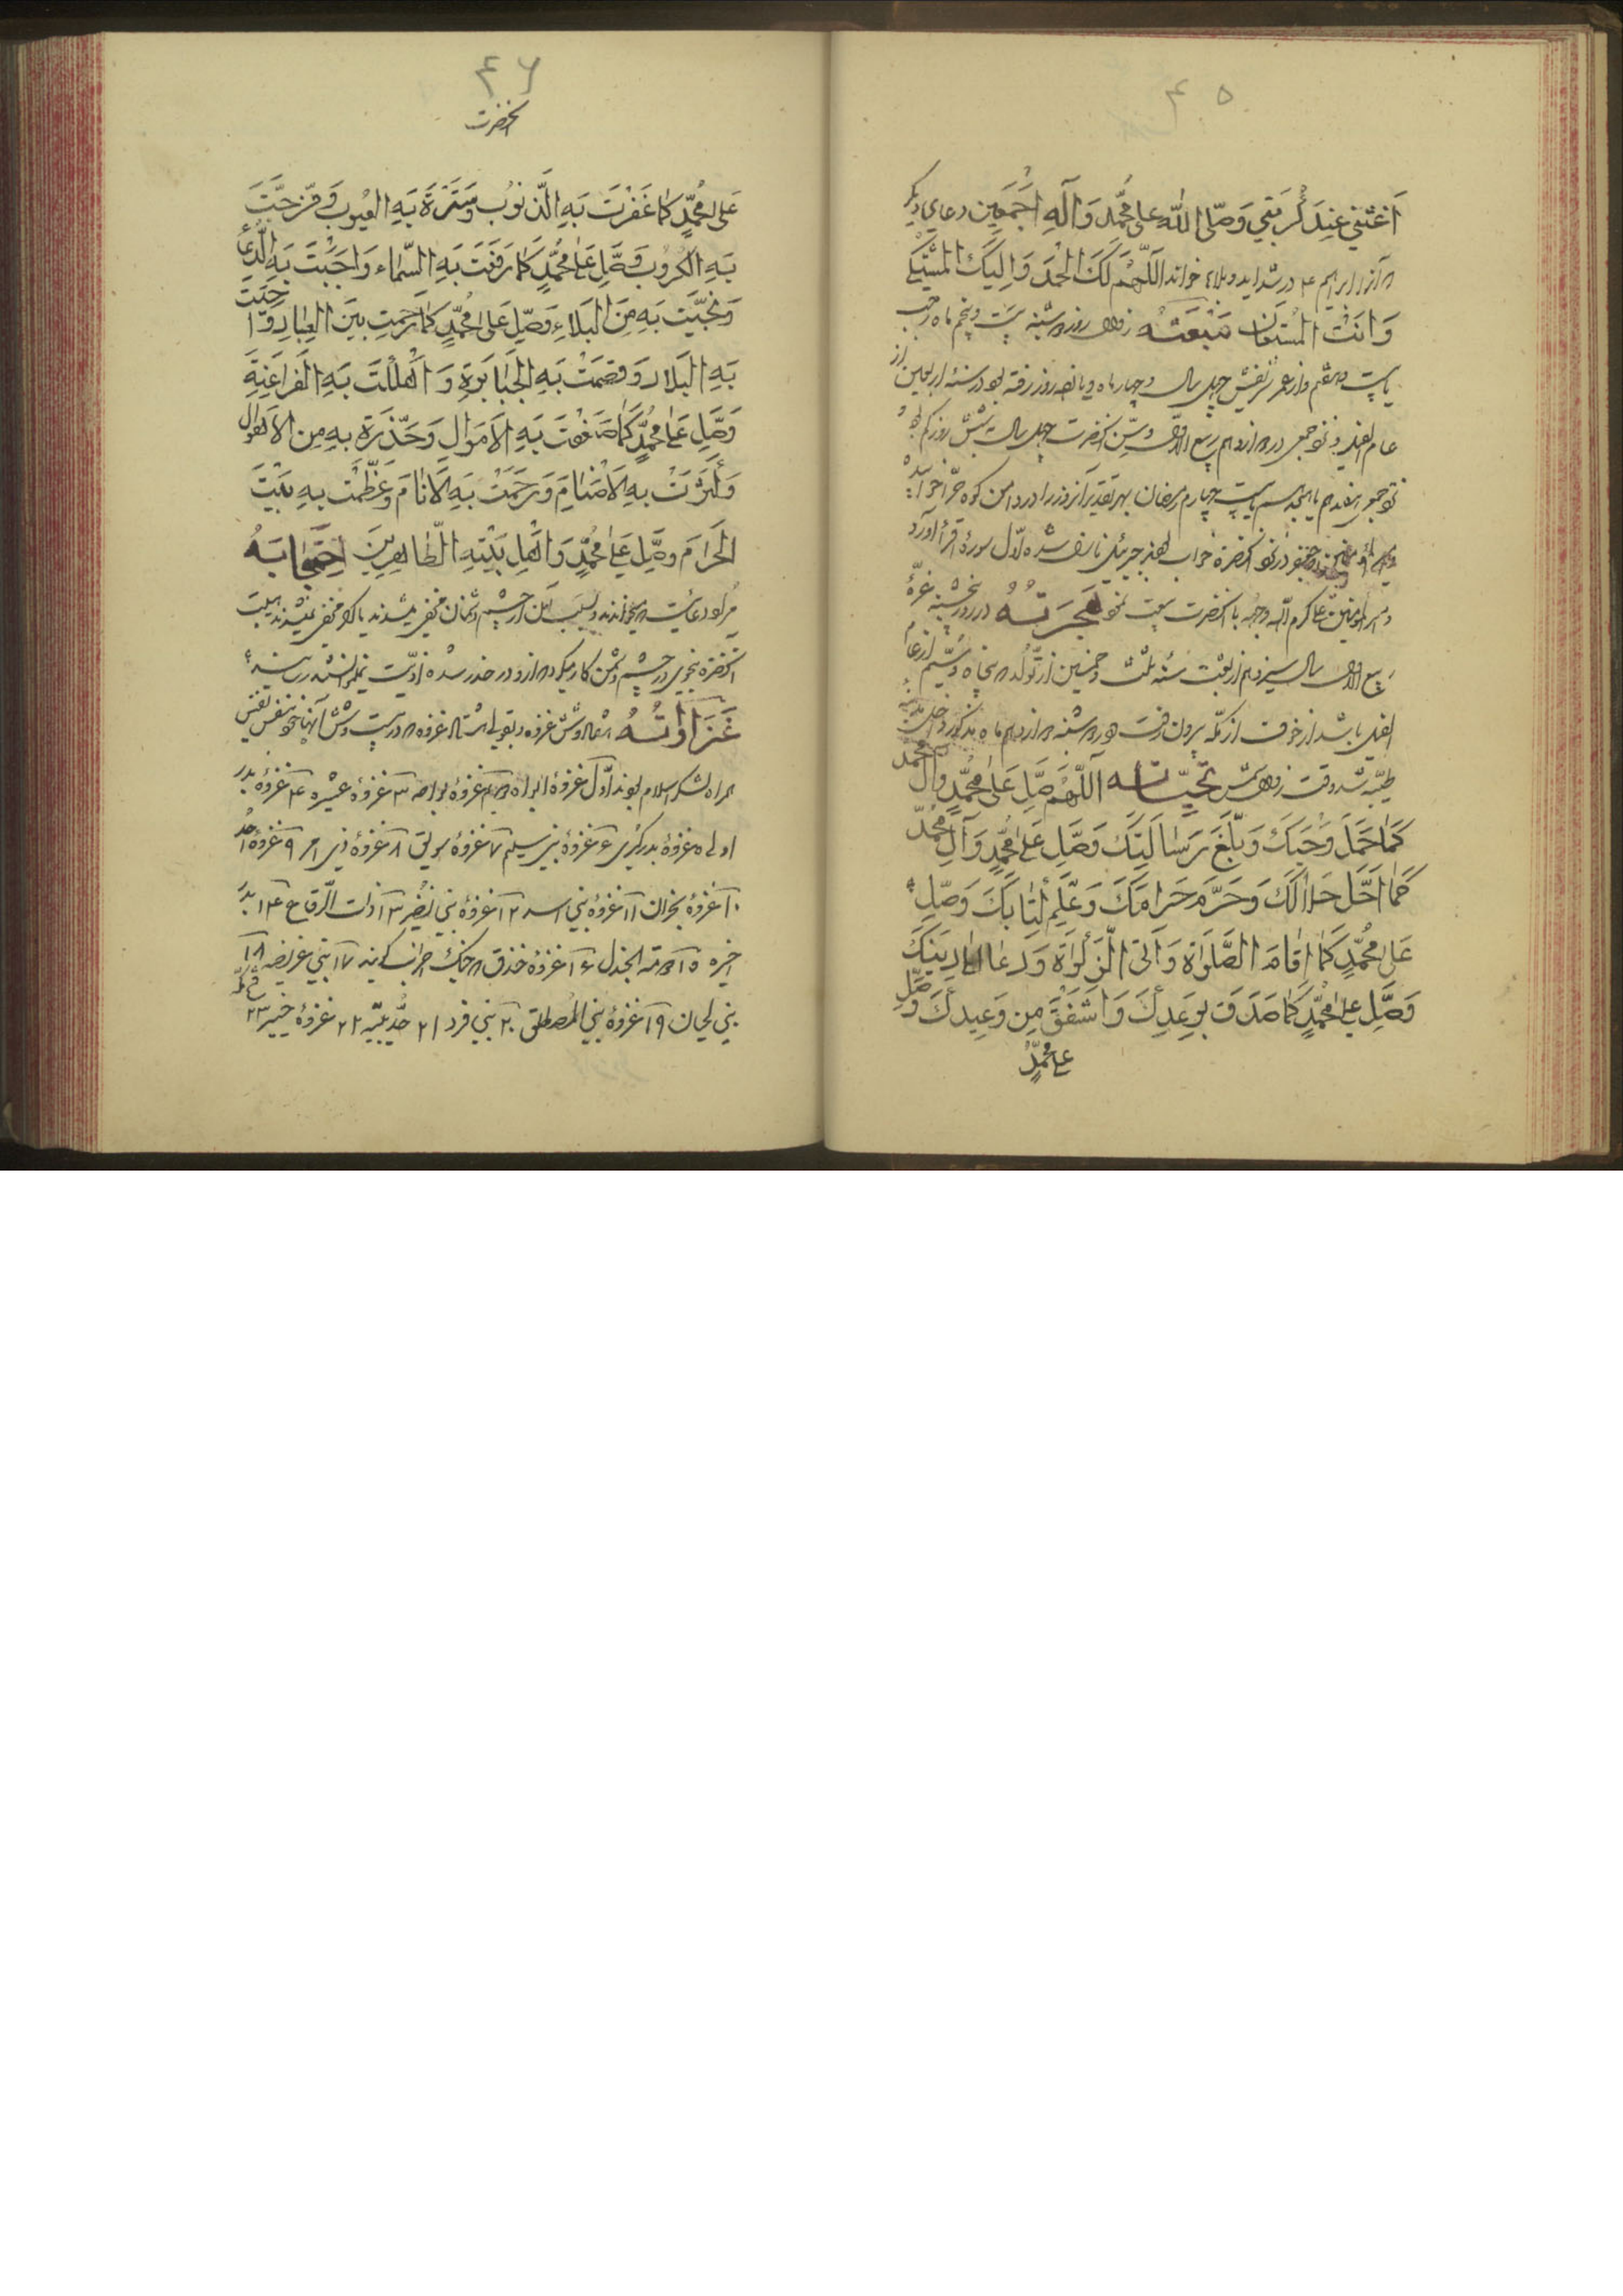 ۴۵
اَغِثْنِي عِنْدَ كُرْبَتِي وَصَلَّى اللّٰهُ عَلٰى مُحَمَّدٍ وَآلِهِ اَجْمَعِينَ دعاي ديكر
ابراهيم ع در شدايد و بلاء خواند اَللّٰهُمَّ لَكَ الْحَمْدُ وَاِلَيْكَ الْمُشْتَكٰى
وَاَنْتَ الْمُسْتَعَانُ مَبْعَثُهُ روز دوشنبه بيست و پنجم ماه رجب
يا بيست و هفتم و از عمر شريفش چهل سال و چهار ماه و روز رفته بود در سنهٔ اربعين از
عام الفيل و نزد جمعى در دوازدهم ربيع الاول و سن آنحضرت چهل سال روز كم
نزد جمعى هفدهم يا هيجدهم يا بيست چهارم رمضان بهر تقدير آنروز را در دامن كوه حرا
در نزد آنحضرة خواب بودند جبرئيل نازل شده اول سورهٔ اقرأ آورد
امير المؤمنين على كرم الله وجهه با آنحضرت بيعت نمود هِجْرَتُهُ در روز پنجشنبه غرّهٔ
ربيع الاول سال سيزدهم از بعثت سنهٔ ثلث و خمسين از تولد پنجاه و سيّم از عام
الفيل باشد از خوف از مكّه بيرون رفت و روز دوشنبه دوازدهم ماه مذكور داخل مدينه
طيّبه شد وقت تَحِيَّاتُهُ اَللّٰهُمَّ صَلِّ عَلٰى مُحَمَّدٍ وَآلِ مُحَمَّدٍ
كَمَا حَمَلَ وَحْيَكَ وَبَلَّغَ رِسَالَتَكَ وَصَلِّ عَلٰى مُحَمَّدٍ وَآلِ مُحَمَّدٍ
كَمَا اَحَلَّ حَلَالَكَ وَحَرَّمَ حَرَامَكَ وَعَلَّمَ كِتَابَكَ وَصَلِّ
عَلٰى مُحَمَّدٍ كَمَا اَقَامَ الصَّلٰوةَ وَآتَى الزَّكٰوةَ وَدَعَا اِلٰى دِينِكَ
وَصَلِّ عَلٰى مُحَمَّدٍ كَمَا صَدَقَ بِوَعْدِكَ وَاَشْفَقَ مِنْ وَعِيدِكَ وَصَلِّ
على محمّدٍ
۴۶
آنحضرت
عَلٰى مُحَمَّدٍ كَمَا غَفَرْتَ بِهِ الذُّنُوبَ وَسَتَرْتَ بِهِ الْعُيُوبَ وَفَرَّجْتَ
بِهِ الْكُرُوبَ وَصَلِّ عَلٰى مُحَمَّدٍ كَمَا رَفَعْتَ بِهِ السَّمَاءَ وَاَجَبْتَ بِهِ الدُّعَاءَ
وَنَجَّيْتَ بِهِ مِنَ الْبَلَاءِ وَصَلِّ عَلٰى مُحَمَّدٍ كَمَا رَحِمْتَ بِهِ الْعِبَادَ وَاَحْيَيْتَ
بِهِ الْبِلَادَ وَقَصَمْتَ بِهِ الْجَبَابِرَةَ وَاَهْلَكْتَ بِهِ الْفَرَاعِنَةَ
وَصَلِّ عَلٰى مُحَمَّدٍ كَمَا ضَعَّفْتَ بِهِ الْاَمْوَالَ وَحَذَّرْتَ بِهِ مِنَ الْاَهْوَالِ
وَكَسَّرْتَ بِهِ الْاَصْنَامَ وَرَحِمْتَ بِهِ الْاَنَامَ وَعَظَّمْتَ بِهِ بَيْتَ
الْحَرَامَ وَصَلِّ عَلٰى مُحَمَّدٍ وَاَهْلِ بَيْتِهِ الطَّاهِرِينَ اِحْتِجَابَهُ
مراد دعائيست كه ميخواندند و بسبب آن از چشم دشمنان مخفى ميشدند يا اگر مخفى نميشدند هيبت
آنحضرة بنحوى در چشم دشمن كار ميكرد كه از او در حذر شده اذيّت نميتوانستند رسانيد
غَزَوَاتُهُ و شش غزوه و بقولى غزوه كه در بيست و شش آنها بنفس نفيس
همراه لشكر اسلام بودند اول غزوهٔ ابواء غزوهٔ بواط ۳ غزوهٔ عشيره ۴ غزوهٔ بدر
اولى ۵ غزوهٔ بدر كبرى ۶ غزوهٔ بنى سليم ۷ غزوهٔ سويق ۸ غزوهٔ ذى امر ۹ غزوهٔ احد
۱۰ غزوهٔ نجران ۱۱ غزوهٔ بنى اسد ۱۲ غزوهٔ بنى نضير ۱۳ ذات الرقاع ۱۴ بدر
اخيره ۱۵ دومة الجندل ۱۶ غزوهٔ خندق كه جنك احزاب گويند ۱۷ بنى قريضه ۱۸
بنى لحيان ۱۹ غزوهٔ بنى المصطلق ۲۰ بنى قرد ۲۱ حديبيّه ۲۲ غزوهٔ خيبر ۲۳
فتح مكّه